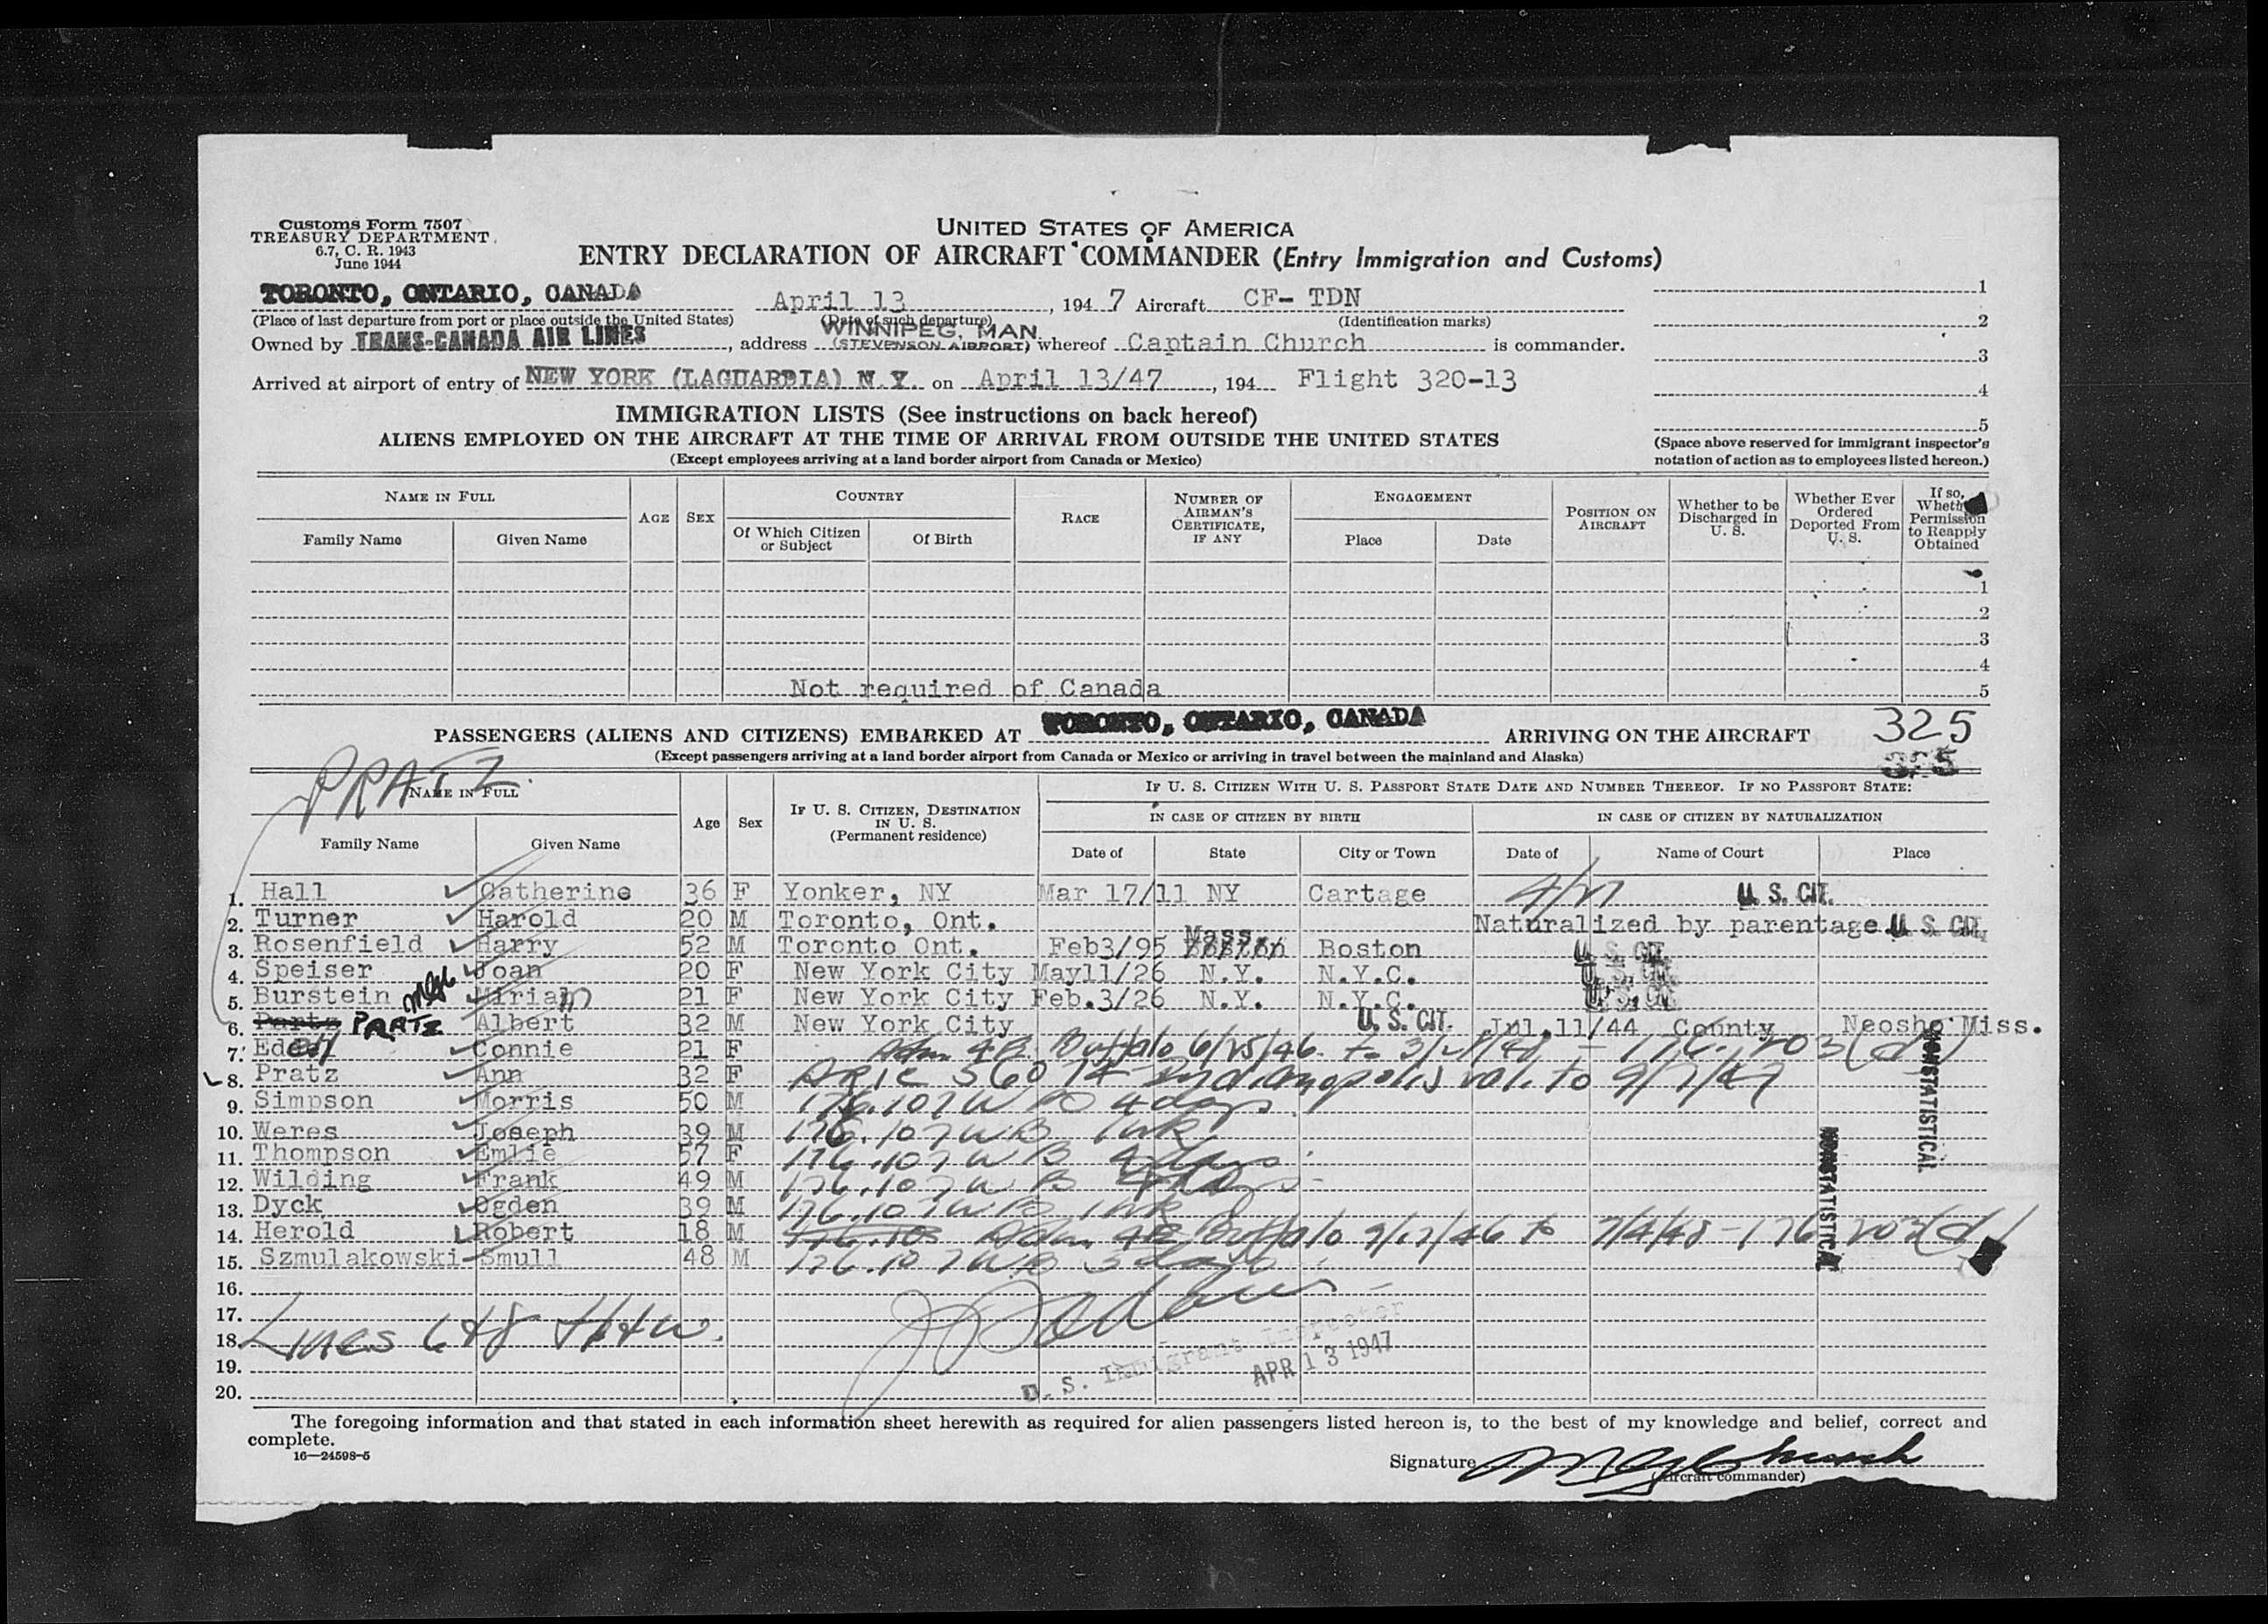 Customs Form 7507
TREASURY DEPARTMENT
6.7, C. R. 1943
June 1944
UNITED STATES OF AMERICA
ENTRY DECLARATION OF AIRCRAFT COMMANDER (Entry Immigration and Customs)
TORONTO, ONTARIO, CANADA April 13, 194 7 Aircraft CF- TDN
(Place of last departure from port or place outside the United States) (Date of such departure) (Identification marks)
WINNIPEG, MAN.
Owned by TRANS-CANADA AIR LINES, address (STEVENSON AIRPORT) whereof Captain Church is commander.
Arrived at airport of entry of NEW YORK (LAGUARDIA) N.Y. on April 13/47, 194 Flight 320-13
1
2
3
4
5
(Space above reserved for immigrant inspector's
notation of action as to employees listed hereon.)
IMMIGRATION LISTS (See instructions on back hereof)
ALIENS EMPLOYED ON THE AIRCRAFT AT THE TIME OF ARRIVAL FROM OUTSIDE THE UNITED STATES
(Except employees arriving at a land border airport from Canada or Mexico)
NAME IN FULL
Family Name Given Name
AGE SEX
COUNTRY
Of Which Citizen or Subject Of Birth
RACE
NUMBER OF AIRMAN'S CERTIFICATE, IF ANY
ENGAGEMENT
Place Date
POSITION ON AIRCRAFT
Whether to be Discharged in U. S.
Whether Ever Ordered Deported From U. S.
If so, Whether Permission to Reapply Obtained
1
2
3
4
Not required of Canada 5
PASSENGERS (ALIENS AND CITIZENS) EMBARKED AT TORONTO, ONTARIO, CANADA ARRIVING ON THE AIRCRAFT 325
(Except passengers arriving at a land border airport from Canada or Mexico or arriving in travel between the mainland and Alaska)
PRATZ.
NAME IN FULL
Family Name Given Name
Age Sex
IF U. S. CITIZEN, DESTINATION IN U. S.
(Permanent residence)
IF U. S. CITIZEN WITH U. S. PASSPORT STATE DATE AND NUMBER THEREOF. IF NO PASSPORT STATE:
IN CASE OF CITIZEN BY BIRTH IN CASE OF CITIZEN BY NATURALIZATION
Date of State City or Town Date of Name of Court Place
1. Hall Catherine 36 F Yonker, NY Mar 17/11 NY Cartage U. S. CIT.
2. Turner Harold 20 M Toronto, Ont. Naturalized by parentage U. S. CIT.
3. Rosenfield Harry 52 M Toronto Ont. Feb3/95 Boston Mass. Boston U. S. CIT.
4. Speiser Joan 20 F New York City May11/26 N.Y. N.Y.C. U. S. CIT.
5. Burstein Miriam 21 F New York City Feb.3/26 N.Y. N.Y.C. U. S. CIT.
6. Partz PRATZ Albert 32 M New York City U. S. CIT. Jul.11/44 County Neosho Miss.
7. Connie 21 F Adm 4B Buffalo 6/25/46 to
8. Pratz Ann 32 F Indianapolis val. to 9/7/47
9. Simpson Morris 50 M 176.107 WB 4 days
10. Weres Joseph 39 M 176.107 WB 1 wk
11. Thompson Emlie 57 F 176.107 WB 4 days
12. Wilding Frank 49 M 176.107 WB 4 days
13. Dyck Ogden 39 M 176.107 WB 1 wk
14. Herold Robert 18 M 176.10 Adm 4B Buffalo
15. Szmulakowski Smull 48 M 176.107 WB 3 days
NONSTATISTICAL
NONSTATISTICAL
16.
17.
18. Lines 6 & 8 H & W.
19.
20.
U. S. Immigrant Inspector
APR 13 1947
The foregoing information and that stated in each information sheet herewith as required for alien passengers listed hereon is, to the best of my knowledge and belief, correct and
complete.
16—24598-5
Signature
(Aircraft commander)